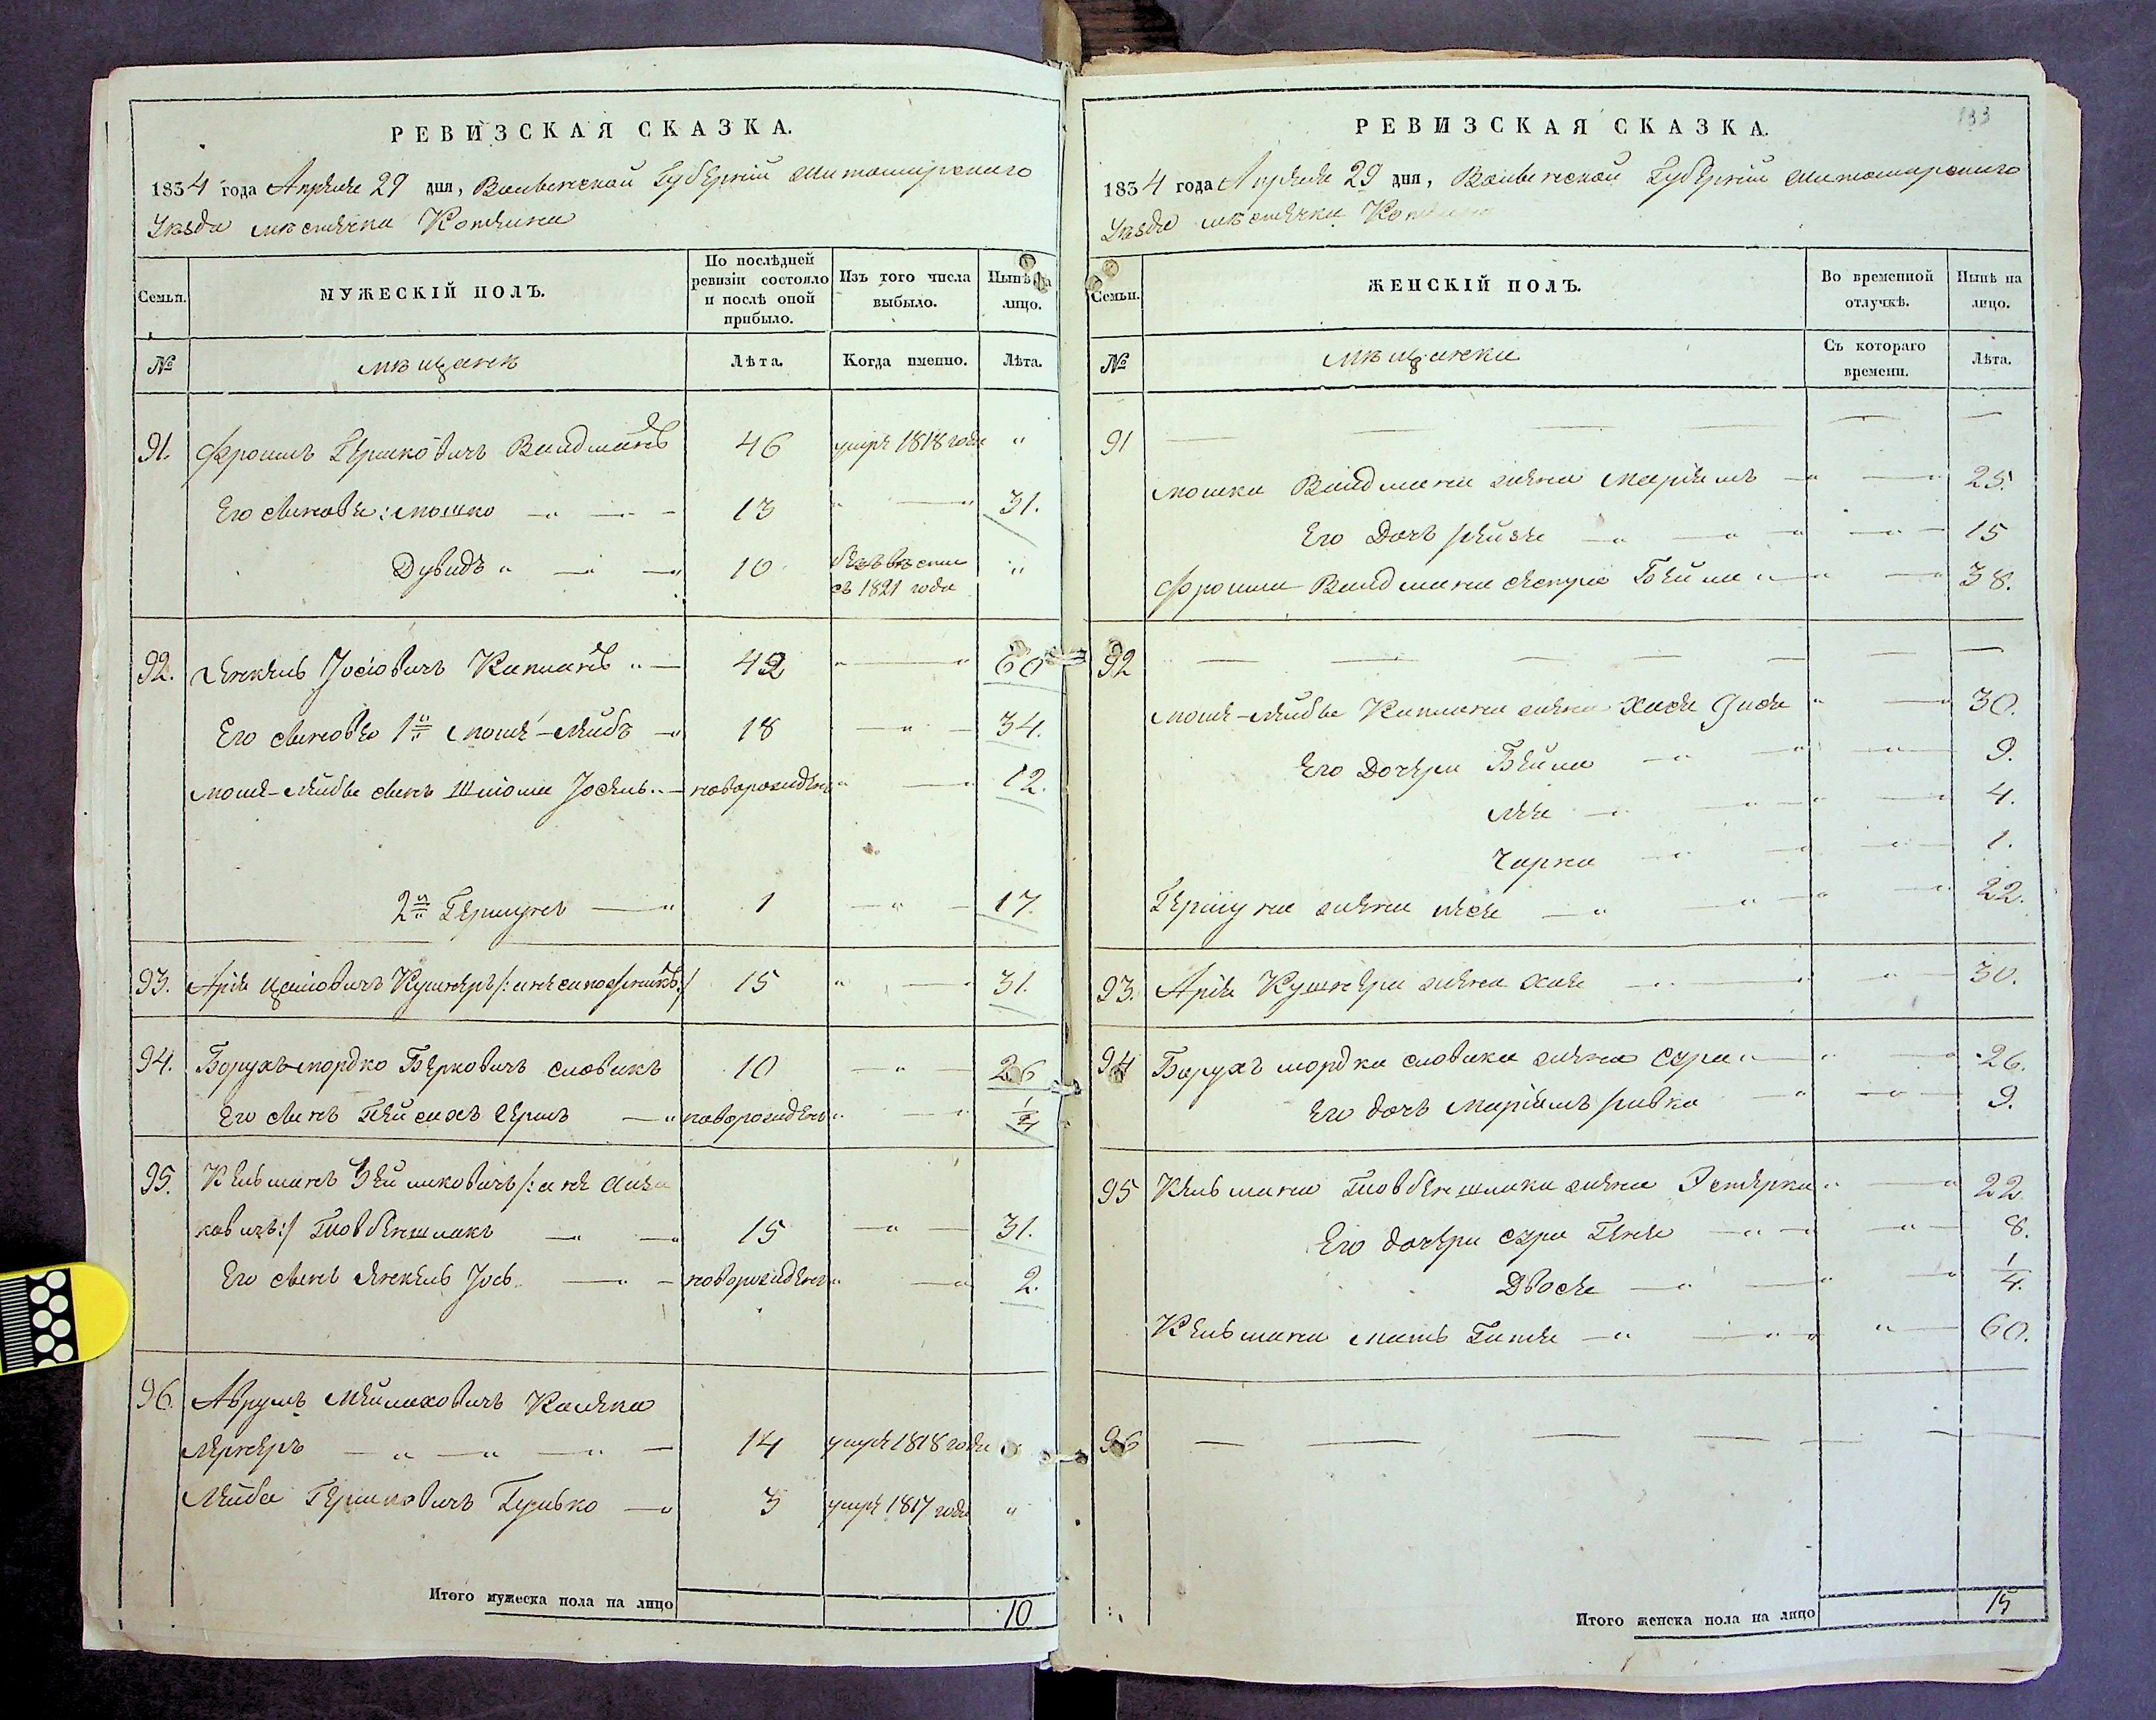 РЕВИЗСКАЯ СКАЗКА.
1834 года Апреля 29 дня, Волынской Губерніи Житомирскаго
Уѣзда мѣстечка Котельни
Семьи.
МУЖЕСКІЙ ПОЛЪ.
По послѣдней ревизіи состояло и послѣ оной прибыло.
Изъ того числа выбыло.
Нынѣ на лицо.
№
мѣщанъ
Лѣта.
Когда именно.
Лѣта.
91. Фроимъ Гершковичъ Вайдманъ 46 умре 1818 года "
Его сыновья: Мошко 13 " 31.
Дувидъ 10 безъ вѣсти съ 1821 года "
92. Янкель Іосіовичъ Капланъ 42 " 60
Его сыновья 1й Моше-Лейбъ 18 " 34.
Моше-Лейбы сынъ Шліома Іосель новорожденъ " 12.
2й Гершунъ 1 " 17.
93. Аріе Кушнеръ 15 " 31.
94. Борухъ-Мордко Берковичъ Словикъ 10 " 26
Его сынъ Пейсахъ Гершъ новорожденъ " 1/4
95. Кельманъ Зейликовичъ /: а не
ковичъ:/ 15 " 31.
Его сынъ Янкель Іось новорожденъ " 2.
96. Аврумъ Мейлаховичъ
14 умре 1818 года "
Лейба Гершковичъ Гулько 3 умре 1817 года "
Итого мужеска пола на лицо 10
133
РЕВИЗСКАЯ СКАЗКА.
1834 года Апреля 29 дня, Волынской Губерніи Житомирскаго
Уѣзда мѣстечка Котельни
Семьи.
ЖЕНСКІЙ ПОЛЪ.
Во временной отлучкѣ.
Нынѣ на лицо.
№
мѣщанки
Съ котораго времени.
Лѣта.
91
Мошка Вайдмана жена Маріямъ 25.
Его дочь Рейзя 15
Фроима Вайдмана сестра Бейла 38.
92
Моше-Лейбы Каплана жена Хася 30.
Его дочери Бейла 9.
Лея 4.
Чарна 1.
Гершуна жена 22.
93. Аріе Кушнера жена Хая 30.
94 Борухъ Мордка Словика жена Сура 26.
Его дочь Маріямъ Ривка 9.
95 Кельмана жена Эстерка 22
Его дочери Сура Геня 8.
Двося 1/4.
Кельмана мать Гитля 60.
96
Итого женска пола на лицо 15